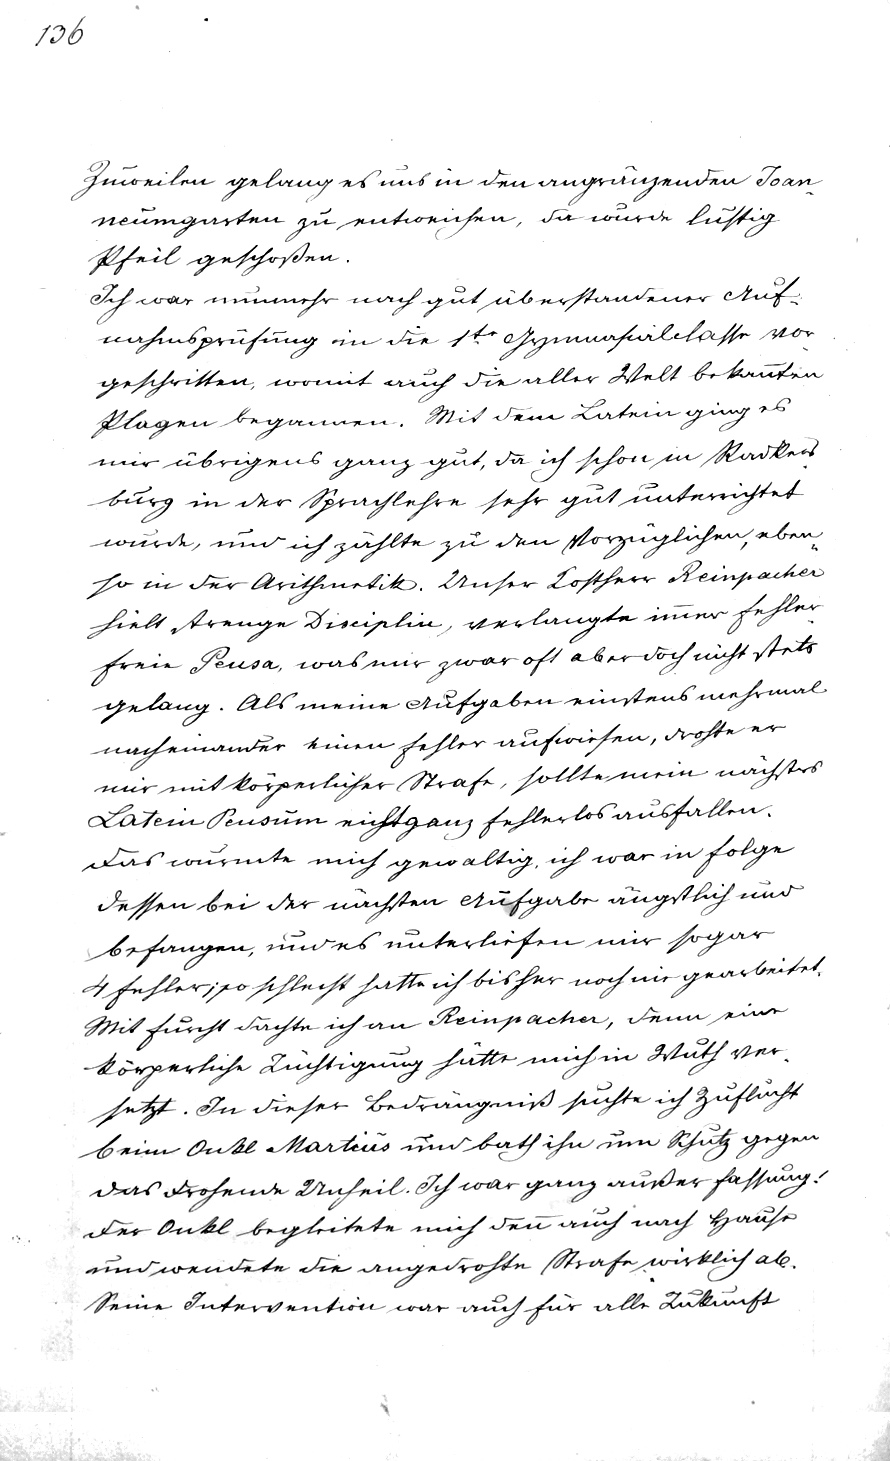 136
Zuweilen gelang es uns in den angränzenden Joan-
neumgarten zu entweichen, da wurde lustig
Pfeil geschoßen.
Ich war nunmehr nach gut überstandener Auf-
nahmsprüfung in die 1te Gymnasialclasse vor-
geschritten, womit auch die aller Welt bekan̄ten
Plagen begannen. Mit dem Latein ging es
mir übrigens ganz gut, da ich schon in Radkers-
burg in der Sprachlehre sehr gut unterrichtet
wurde, und ich zählte zu den Vorzüglichen, eben-
so in der Arithmetik. Unser Kostherr Reinpacher
hielt strenge Disciplin, verlangte im̄er fehler-
freie Pensa, was mir zwar oft aber doch nicht stets
gelang. Als meine Aufgaben einstens mehrmal
nacheinander einen Fehler aufwiesen, drohte er
mir mit körperlicher Strafe, sollte mein nächstes
Latein Pensum nicht ganz fehlerlos ausfallen.
Das wurmte mich gewaltig, ich war in Folge
dessen bei der nächsten Aufgabe ängstlich und
befangen, und es unterliefen mir sogar
4 Fehler; so schlecht hatte ich bisher noch nie gearbeitet.
Mit Furcht dachte ich an Reinpacher, denn eine
körperliche Züchtigung hätte mich in Wuth ver-
setzt. In dieser Bedrängniß suchte ich Zuflucht
beim Onkl Martius und bath ihn um Schutz gegen
das drohende Unheil. Ich war ganz außer Fassung!
Der Onkl begleitete mich den̄ auch nach Hause
und wendete die angedrohte Strafe wirklich ab.
Seine Intervention war auch für alle Zukunft